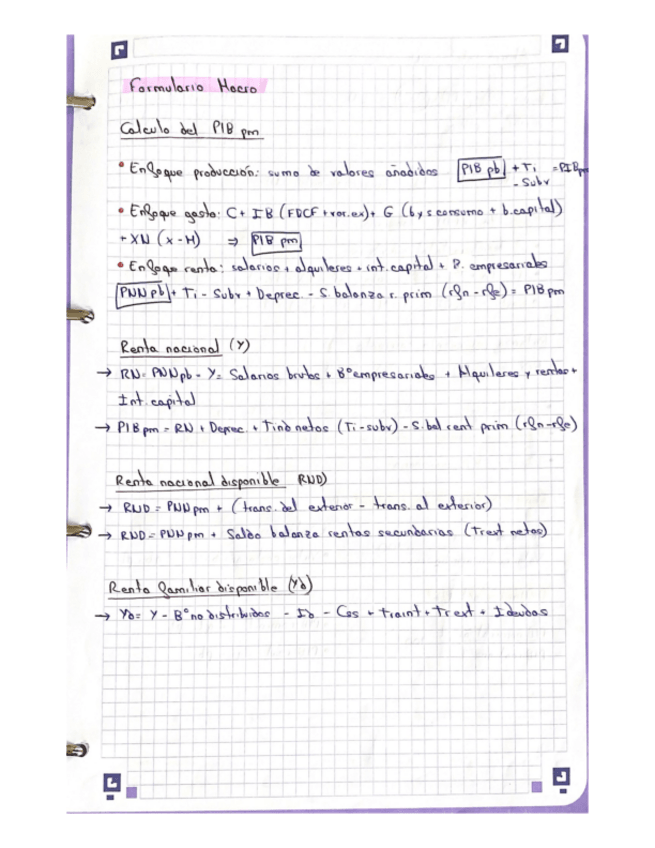 Formulario Macro
Calculo del PIB pm
• Enfoque producción: suma de valores añadidos PIB pb + Ti = PIBpm
- Subv
• Enfoque gasto: C + IB (FBCF + var. ex) + G (b y s consumo + b. capital)
+ XN (x - M) ⇒ PIB pm
• Enfoque renta: salarios + alquileres + int. capital + B. empresariales
PNN pb + Ti - Subv + Deprec. - S. balanza r. prim (rfn - rfe) = PIB pm
Renta nacional (Y)
→ RN = PNN pb = Y = Salarios brutos + Bº empresariales + Alquileres y rentas +
Int. capital
→ PIB pm = RN + Deprec. + Tind netos (Ti - subv) - S. bal rent prim (rfn - rfe)
Renta nacional disponible RND)
→ RND = PNN pm + (trans. del exterior - trans. al exterior)
→ RND = PNN pm + Saldo balanza rentas secundarias (Trext netas)
Renta familiar disponible (Yd)
→ Yd = Y - Bº no distribuidos - Id - Css + Traint + Trext + Ideudas